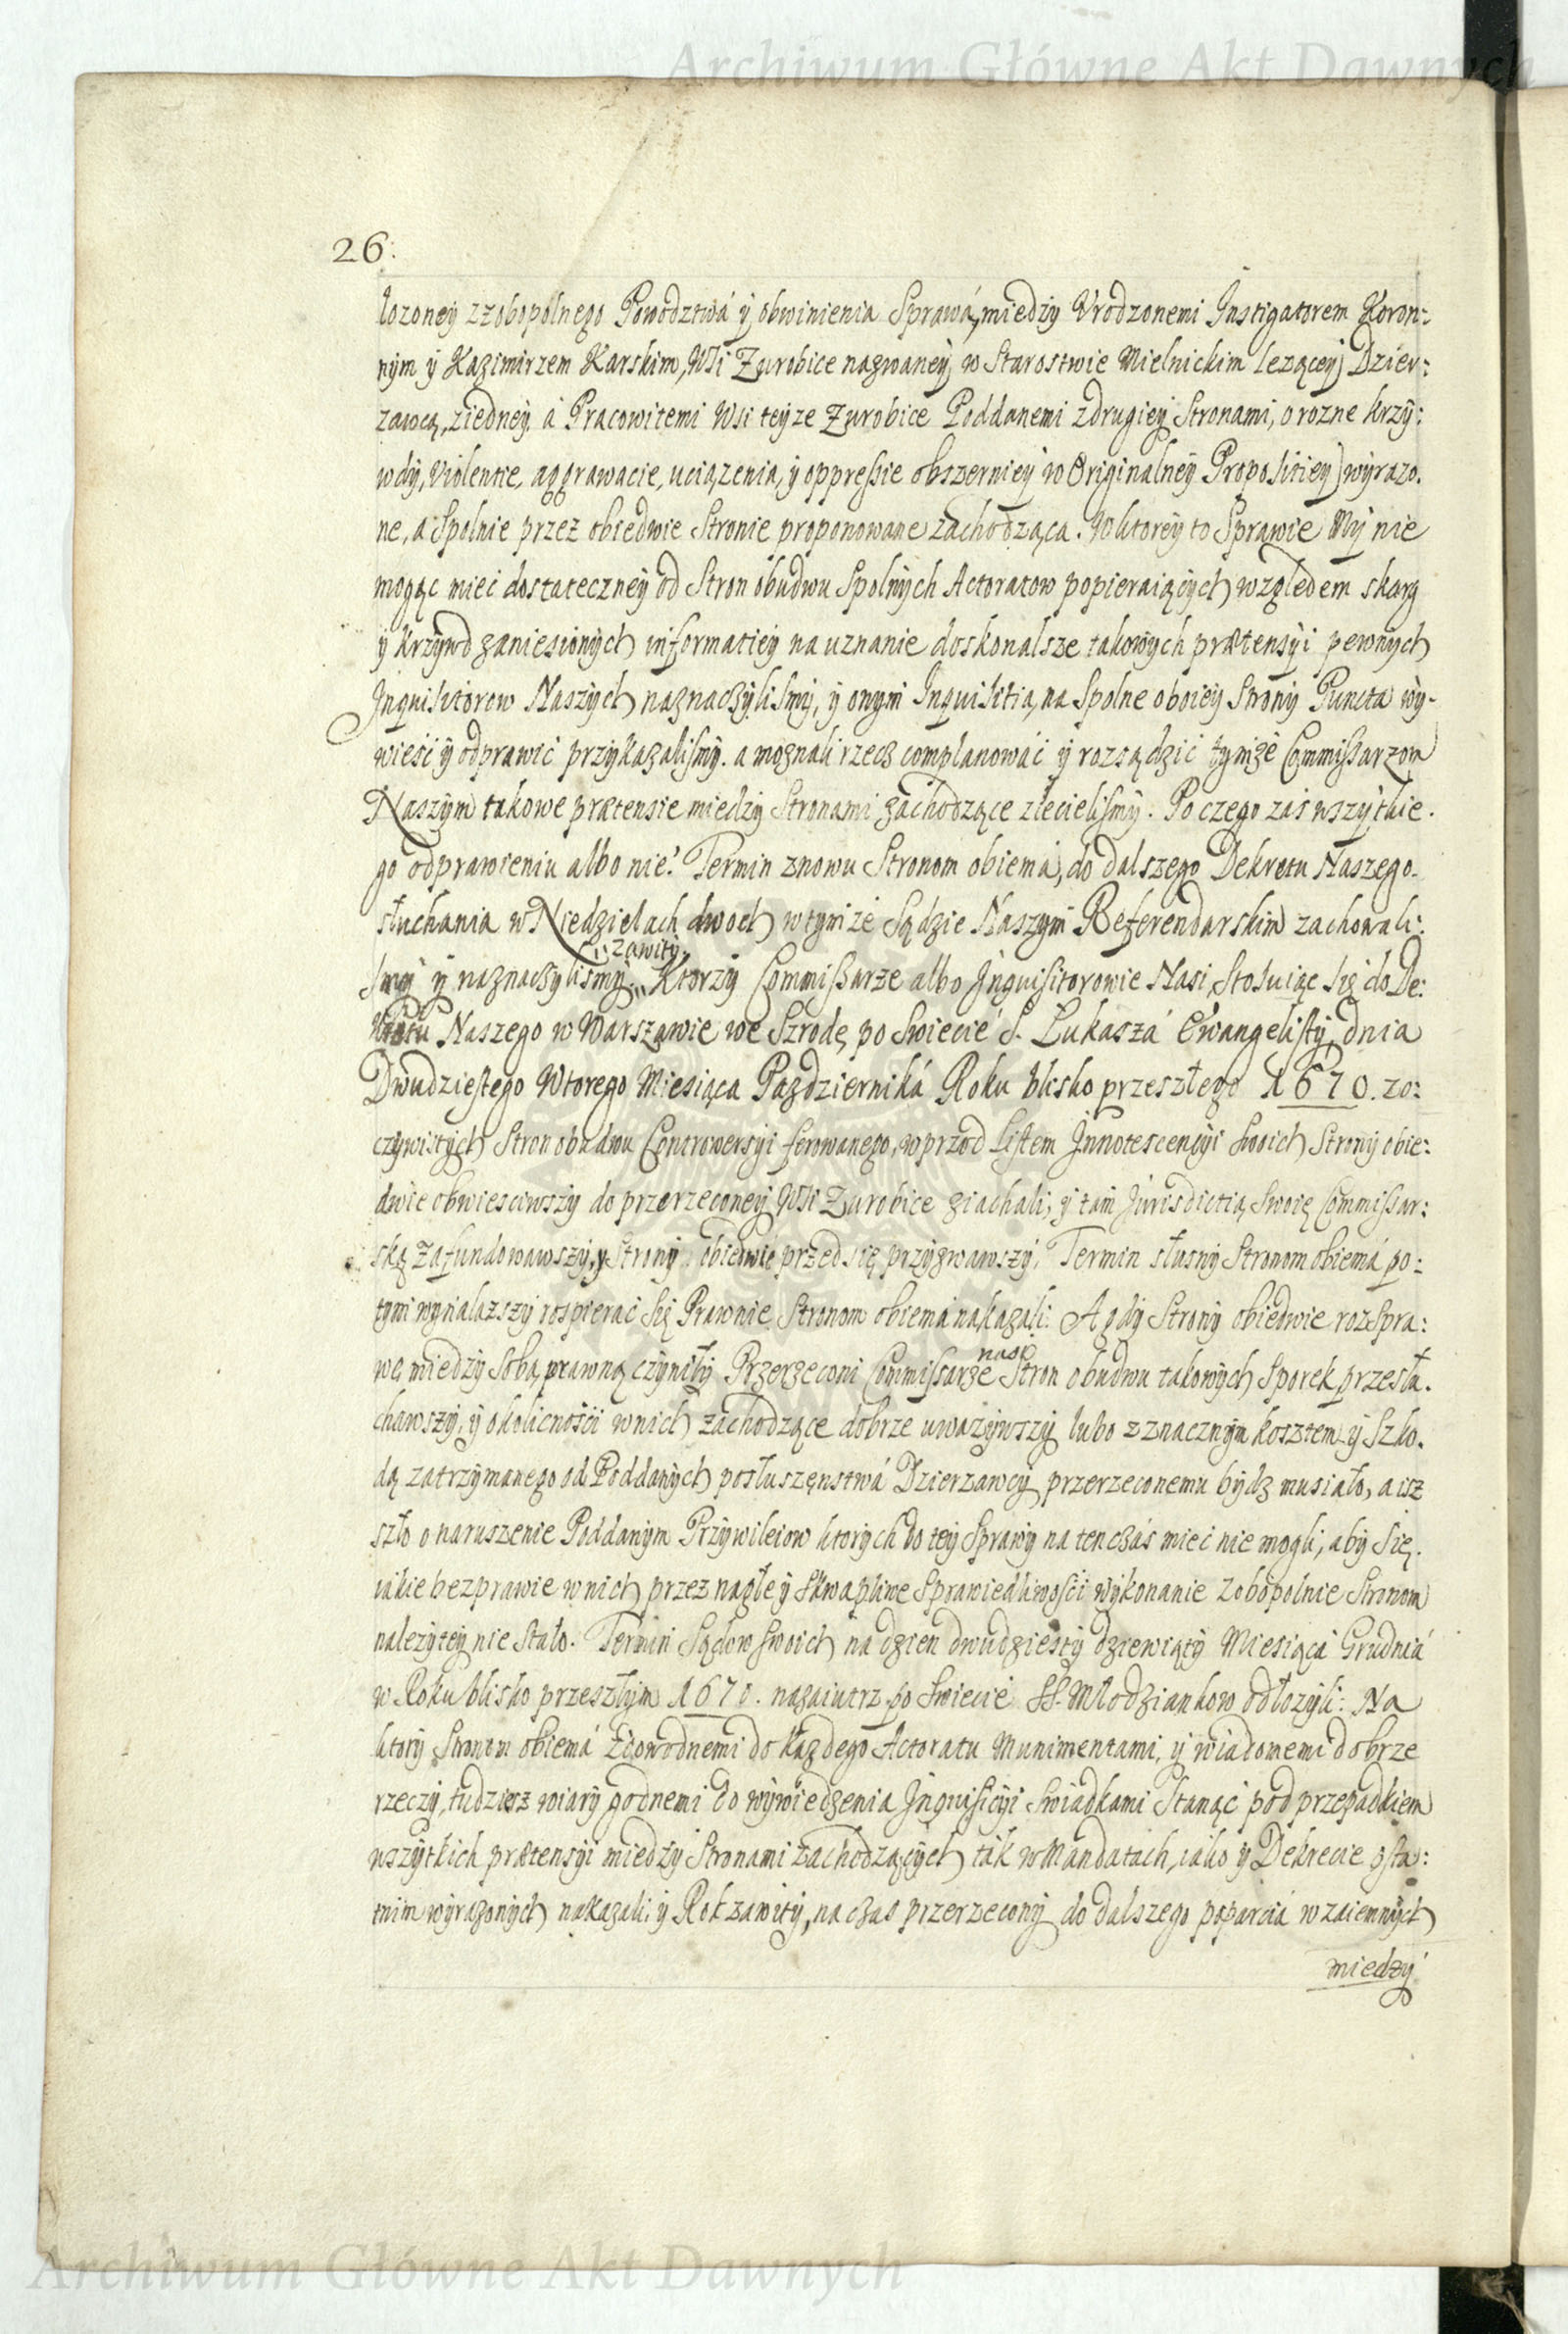 Archiwum Główne Akt Dawnych
26.
łozoney zzobopolnego Powodztwá y obwinienia Sprawá, miedzy Vrodzonemi Instigatorem Koron:
nym y Kazimirzem Karskim, Wsi Zurobice nazwaney w Starostwie Mielnickim lezącey Dzier:
zawcą, ziedney á Pracowitemi Wsi teyze Zurobice Poddanemi zdrugiey Stronami, o rozne krzy:
wdy, violentie, aggrawacie, uciązenia, y oppressie obszerniey w Originalney Propositiey wyrazo.
ne, a Spolnie przez obiedwie Stronie proponowane zachodząca. W ktorey to Sprawie My nie
mogąc mieć dostateczney od Stron obudwu Spolnych Actoratow popieraiących względem skarg
y krzywd zaniesionych informatiey na uznanie doskonalsze takowych prætensyi pewnych
Inquisitorow Naszych naznaczylismy, y onym Inquisitią, na Spolne oboiey Strony Puncta wy-
wieśc y odprawić przykazalismy. a moznali rzecz complanowáć y rozsądzić tymże Commissarzom
Naszym takowe prætensie miedzy Stronami zachodzące zlecielismy. Po czego zaś wszytkie.
go odprawieniu albo nie? Termin znowu Stronom obiemá, do dalszego Dekretu Naszego.
słuchania w Niedzielach dwoch w tymże Sądzie Naszym Referendarskim zachowali:
zawity.
smy y naznaczylismy. Ktorzy Commissarze albo Inquisitorowie Nasi, Stosuiąc się do De:
kretu Naszego w Warszawie we Szrodę po Swiecie S. Lukaszá Ewangelisty, dnia
Dwudziestego Wtorego Miesiąca Pazdzierniká Roku blisko przeszłego 1670. zo:
czywistych Stron obudwu Controwersyi ferowanego, wprzod Listem Innotescencyi Swoich Strony obie:
dwie obwiesciwszy do przerzeconey Wsi Zurobice ziachali; y tam Jurisdictią Swoię Commissar:
ską zafundowawszy, y Strony obiedwie przed się przyzwawszy. Termin słusny Stronom obiemá po:
tym wynalazszy rospierac się Prawnie Stronom obiemá nakazali. A gdy Strony obiedwie rozspra:
nasi
wę miedzy Sobą prawną czyniły Przerzeconi Commissarze Stron obudwu takowych Sporek przesłu.
chawszy, y okolicności w nich zachodzące dobrze uwazywszy lubo z znacznym kosztem y Szko.
dą zatrzymanego od Poddanych posłuszęnstwá Dzierzawcy przerzeconemu bydz musiało, a isz
szło o naruszenie Poddanym Przywileiow ktorych do tey Sprawy na tenczás mieć nie mogli, aby Się.
iakie bezprawie w nich przez nagłe y Skwapliwe Sprawiedliwości wykonanie zobopolnie Stronom
nalezytey nie Stało. Termin Sądow Swoich na dzien dwudziesty dziewiąty Miesiącá Grudniá
w Roku blisko przeszłym 1670. nazaiutrz po Swiecie SS. Młodziankow odłozyli: Na
ktory Stronom obiemá zdowodnemi do kazdego Actoratu Munimentami, y wiadomemi dobrze
rzeczy, tudziesz wiary godnemi do wywiedzenia Inquisicyi Swiadkami Stanąć pod przepadkiem
wszytkich prætensyi miedzy Stronami zachodzących tak w Mandatach, iako y Dekrecie osta:
tnim wyrazonych nakazali; y Rok zawity, na czas przerzecony do dalszego poparciá wzaiemnych
miedzy
Archiwum Główne Akt Dawnych